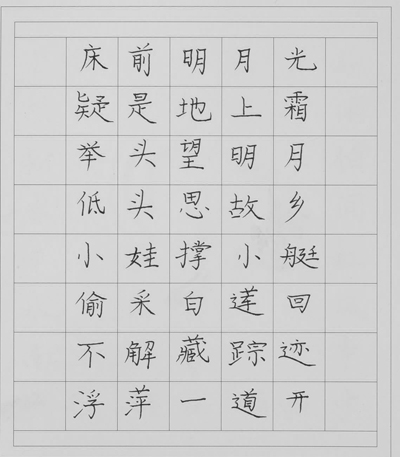 床前明月光
疑是地上霜
举头望明月
低头思故乡
小娃撑小艇
偷采白莲回
不解藏踪迹
浮萍一道开